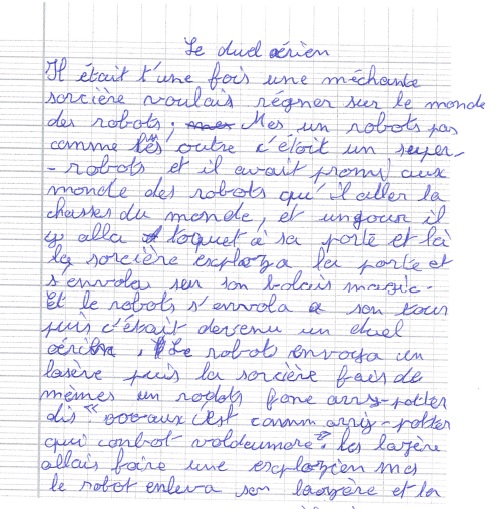 Le duel aérien
Il était t'une fois une méchante
sorcière voulais régner sur le monde
des robots, Mes un robots pas
comme les outre c'étoit un super-
-robots et il avait promi aux
monde des robots qu'il aller la
chasses du monde, et unjour il
y alla toquet à sa porte et là
la sorcière exploza la porte et
s'envola sur son balais magic.
Et le robots s'envola a son tour
puis c'était devenu un duel
aérien, Le robots envoya un
lasère puis la sorcière fais de
mèmes un robots fane arry-potter
dis "ooo aux c'est comm arry-potter
qui conbat voldeumore". les lazère
allais faire une explozien mes
le robot enleva son lazère et la